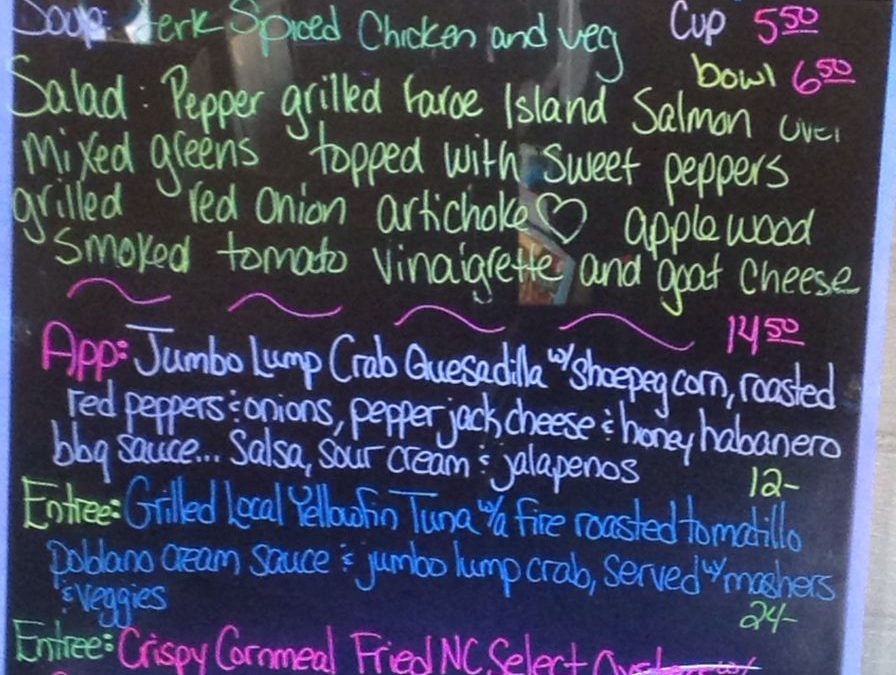 Soup: Jerk Spiced Chicken and veg Cup 5.50
bowl 6.50
Salad: Pepper grilled Faroe Island Salmon over
mixed greens topped with sweet peppers
grilled red onion artichoke♡ applewood
smoked tomato vinaigrette and goat cheese
14.50
App: Jumbo Lump Crab Quesadilla w/ shoepeg corn, roasted
red peppers & onions, pepper jack cheese & honey habanero
bbq sauce... Salsa, sour cream & jalapenos
12-
Entree: Grilled Local Yellowfin Tuna w/a fire roasted tomatillo
poblano cream sauce & jumbo lump crab, served w/ mashers
& veggies
24-
Entree: Crispy Cornmeal Fried NC Select Oysters w/